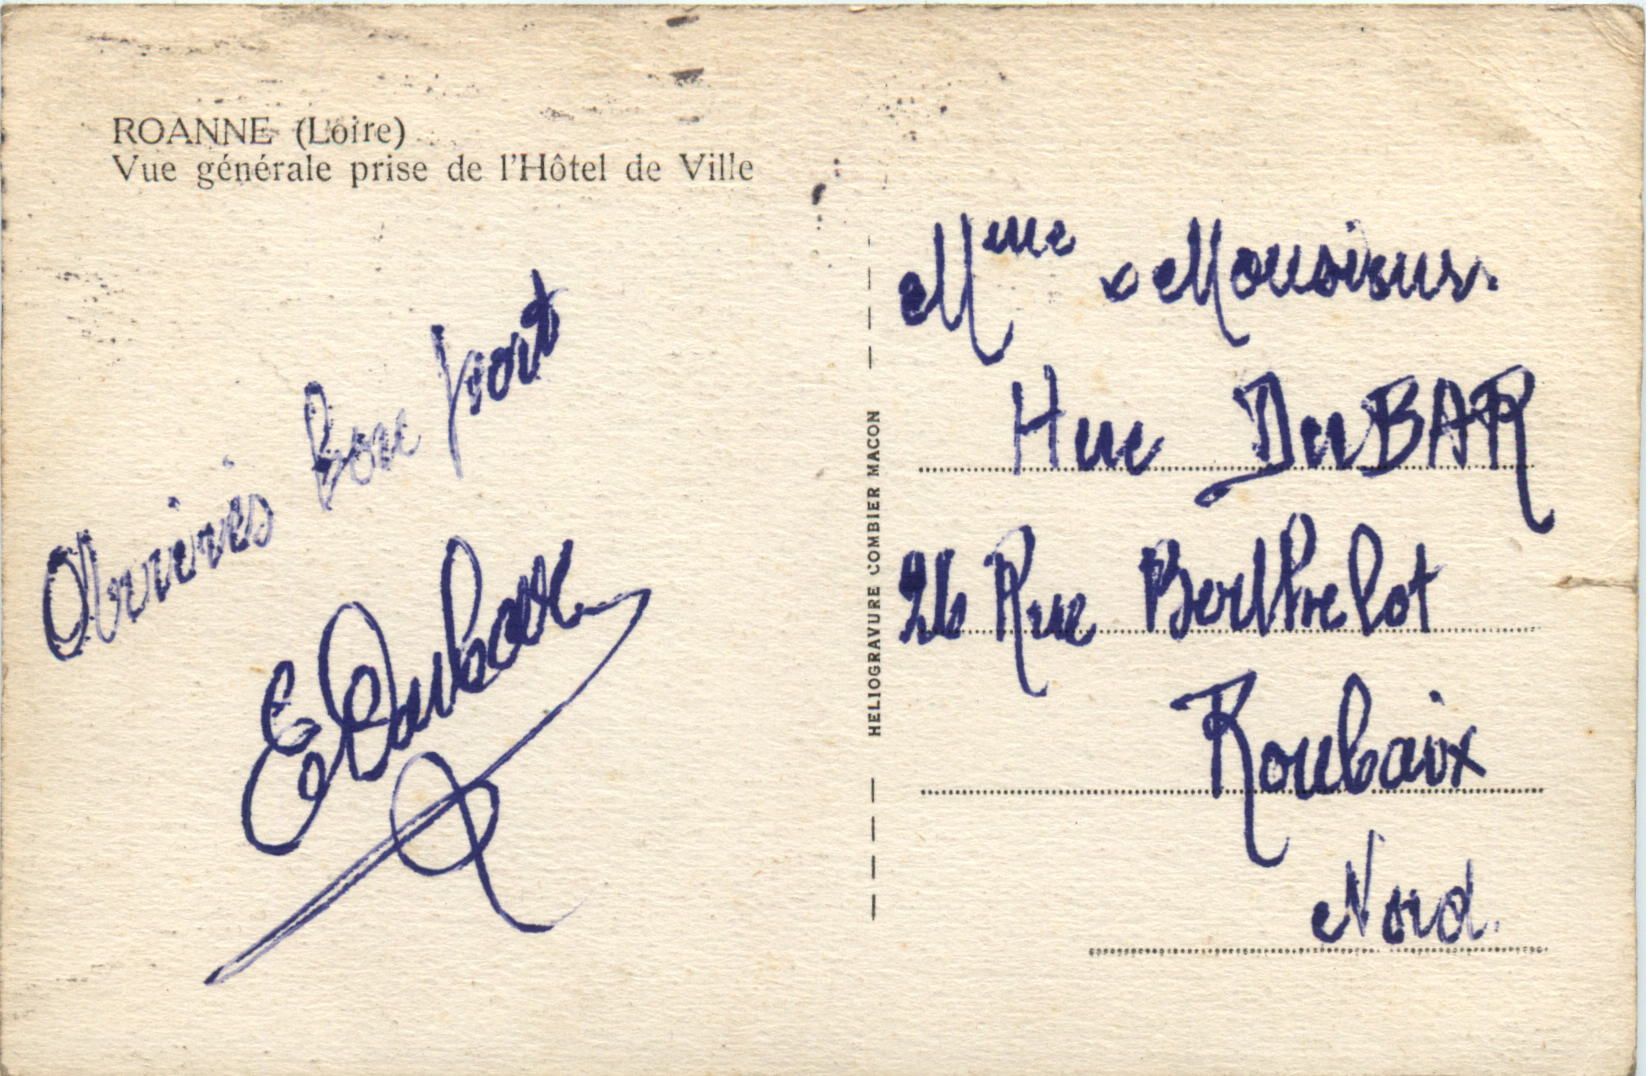 ROANNE (Loire)
Vue générale prise de l'Hôtel de Ville
Arrivés bon port
E Dubar
HELIOGRAVURE COMBIER MACON
Mme & Monsieur
Hue DuBAR
26 Rue Berthelot
Roubaix
Nord.